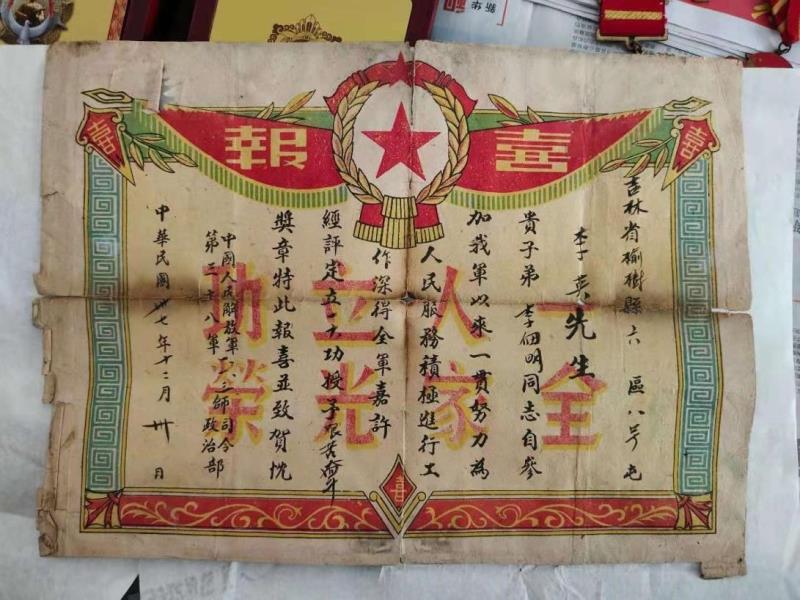 喜報
喜
喜
吉林省榆樹縣六區八号屯
李英先生
貴子弟李佃明同志自參
加我軍以來一貫努力為
人民服務積極進行工
作深得全軍嘉許
經評定立大功授予艰苦奋斗
獎章特此報喜並致賀忱
中國人民解放軍一一三師司令
第三十八軍政治部
中華民國卅七年十二月卅日
一人立功
全家光榮
喜